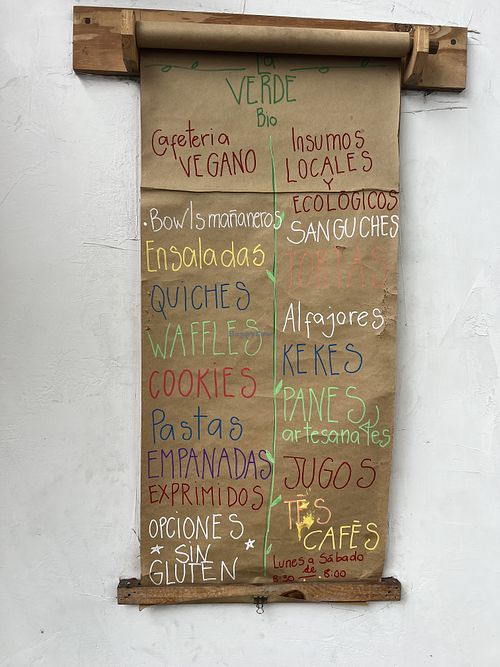 La
VERDE
Bio
Cafeteria
VEGANO
• Bowls mañaneros
Ensaladas
QUICHES
WAFFLES
COOKIES
Pastas
EMPANADAS
EXPRIMIDOS
OPCIONES
SIN
GLUTEN
Insumos
LOCALES
Y
ECOLÓGICOS
SANGUCHES
TORTAS
Alfajores
KEKES
PANES
artesanales
JUGOS
TÉS
CAFÉS
Lunes a Sábado
de
8:30 - 8:00